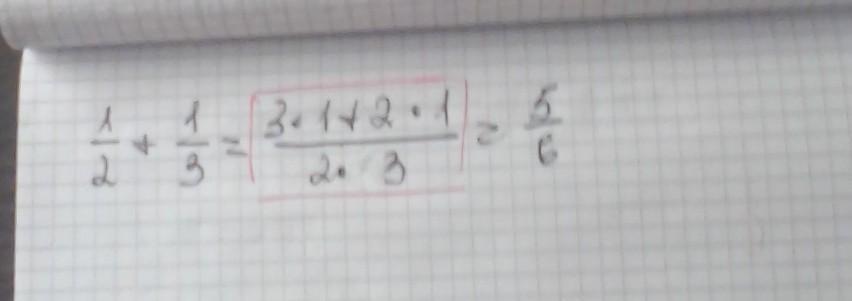 1/2 + 1/3 = (3·1+2·1)/(2·3) = 5/6